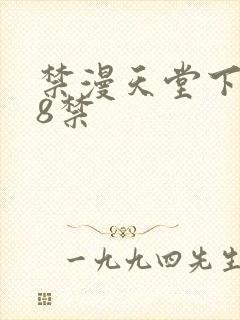 禁漫天堂下
8禁
一九九四先生